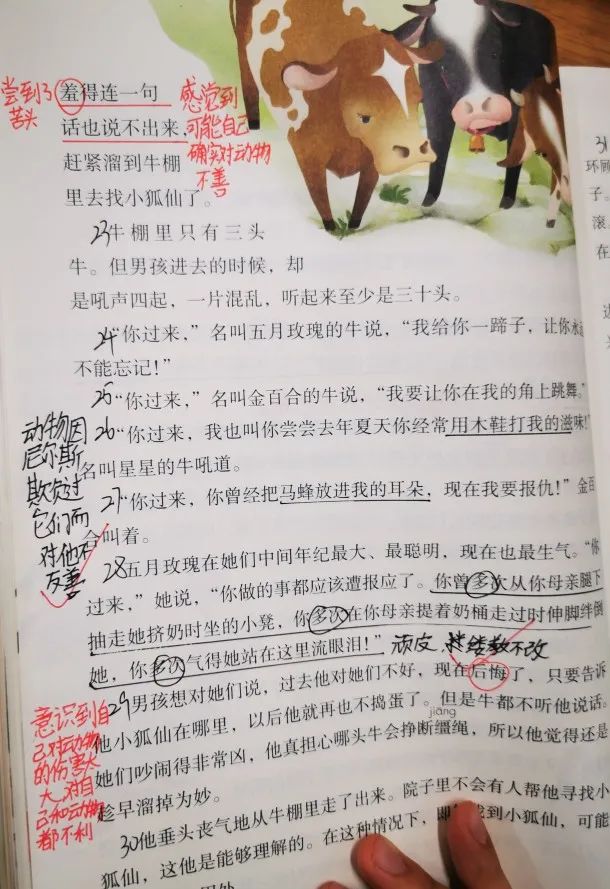 尝到了
苦头
羞得连一句
话也说不出来，
赶紧溜到牛棚
里去找小狐仙了。
感觉到
可能自己
确实对动物
不善
23牛棚里只有三头
牛。但男孩进去的时候，却
是吼声四起，一片混乱，听起来至少是三十头。
24“你过来，”名叫五月玫瑰的牛说，“我给你一蹄子，让你永远
不能忘记！”
25“你过来，”名叫金百合的牛说，“我要让你在我的角上跳舞。”
26“你过来，我也叫你尝尝去年夏天你经常用木鞋打我的滋味！”
名叫星星的牛吼道。
27“你过来，你曾经把马蜂放进我的耳朵，现在我要报仇！”金百
合叫着。
动物因
尼尔斯
欺负过
它们而
对他不
友善
28五月玫瑰在她们中间年纪最大、最聪明，现在也最生气。“你
过来，”她说，“你做的事都应该遭报应了。你曾多次从你母亲腿下
抽走她挤奶时坐的小凳，你多次在你母亲提着奶桶走过时伸脚绊倒
她，你多次气得她站在这里流眼泪！”
顽皮 屡教不改
29男孩想对她们说，过去他对她们不好，现在后悔了，只要告诉
他小狐仙在哪里，以后他就再也不捣蛋了。但是牛都不听他说话。
jiāng
她们吵闹得非常凶，他真担心哪头牛会挣断缰绳，所以他觉得还是
趁早溜掉为妙。
意识到自
己对动物
的伤害太
大，对自
己和动物
都不利
30他垂头丧气地从牛棚里走了出来。院子里不会有人帮他寻找小
狐仙，这他是能够理解的。在这种情况下，即使找到小狐仙，可能
31
环顾
子。
滚。
在